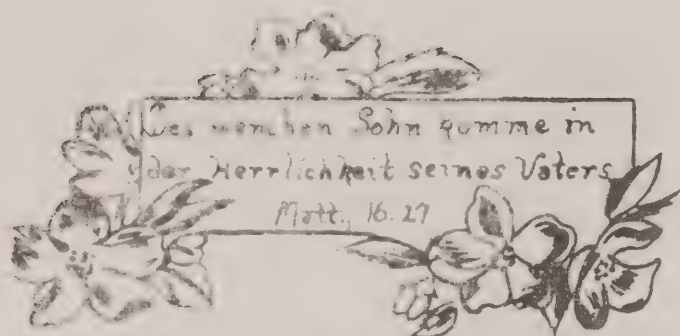 Des menchen Sohn komme in
der Herrlichkeit seines Vaters
Matt., 16.27